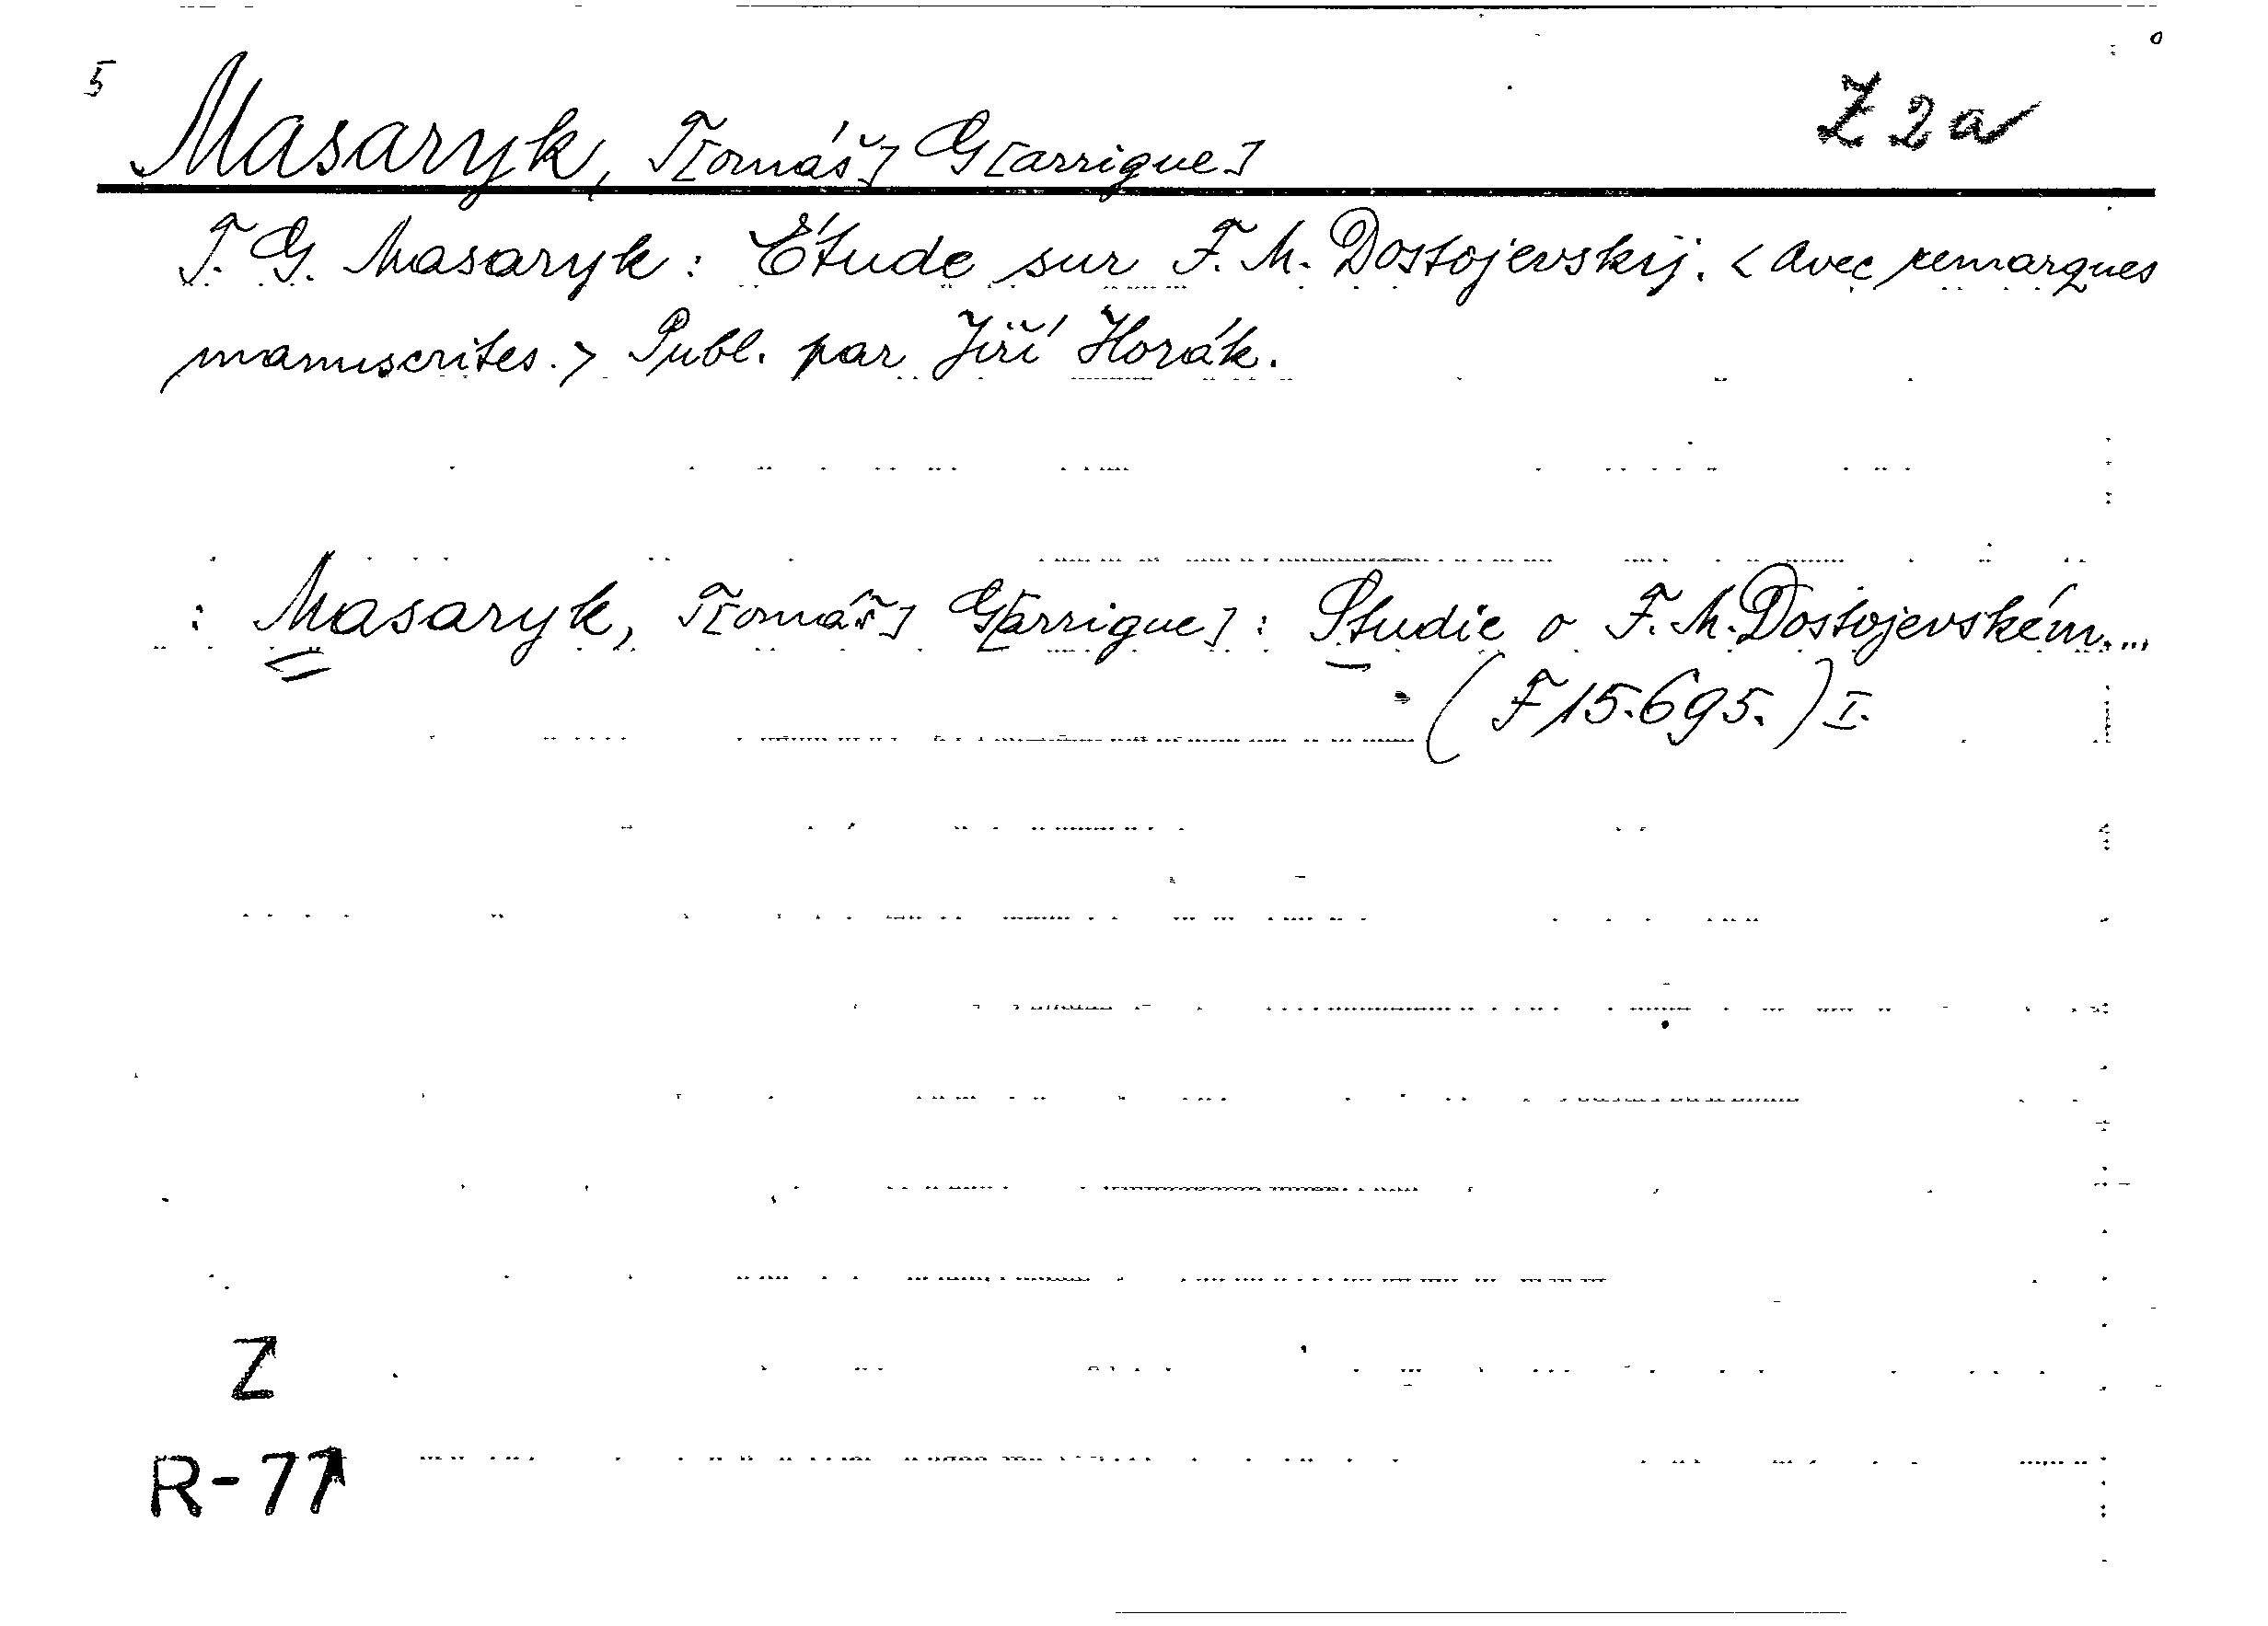 5 Masaryk, T[omáš] G[arrigue] Z 2a
T. G. Masaryk: Étude sur F. M. Dostojevskij. < avec remarques
manuscrites.> Publ. par Jiří Horák.
: Masaryk, T[omáš] G[arrigue]: Studie o F. M. Dostojevském...
(F 15.695.) I.
Z
R-77